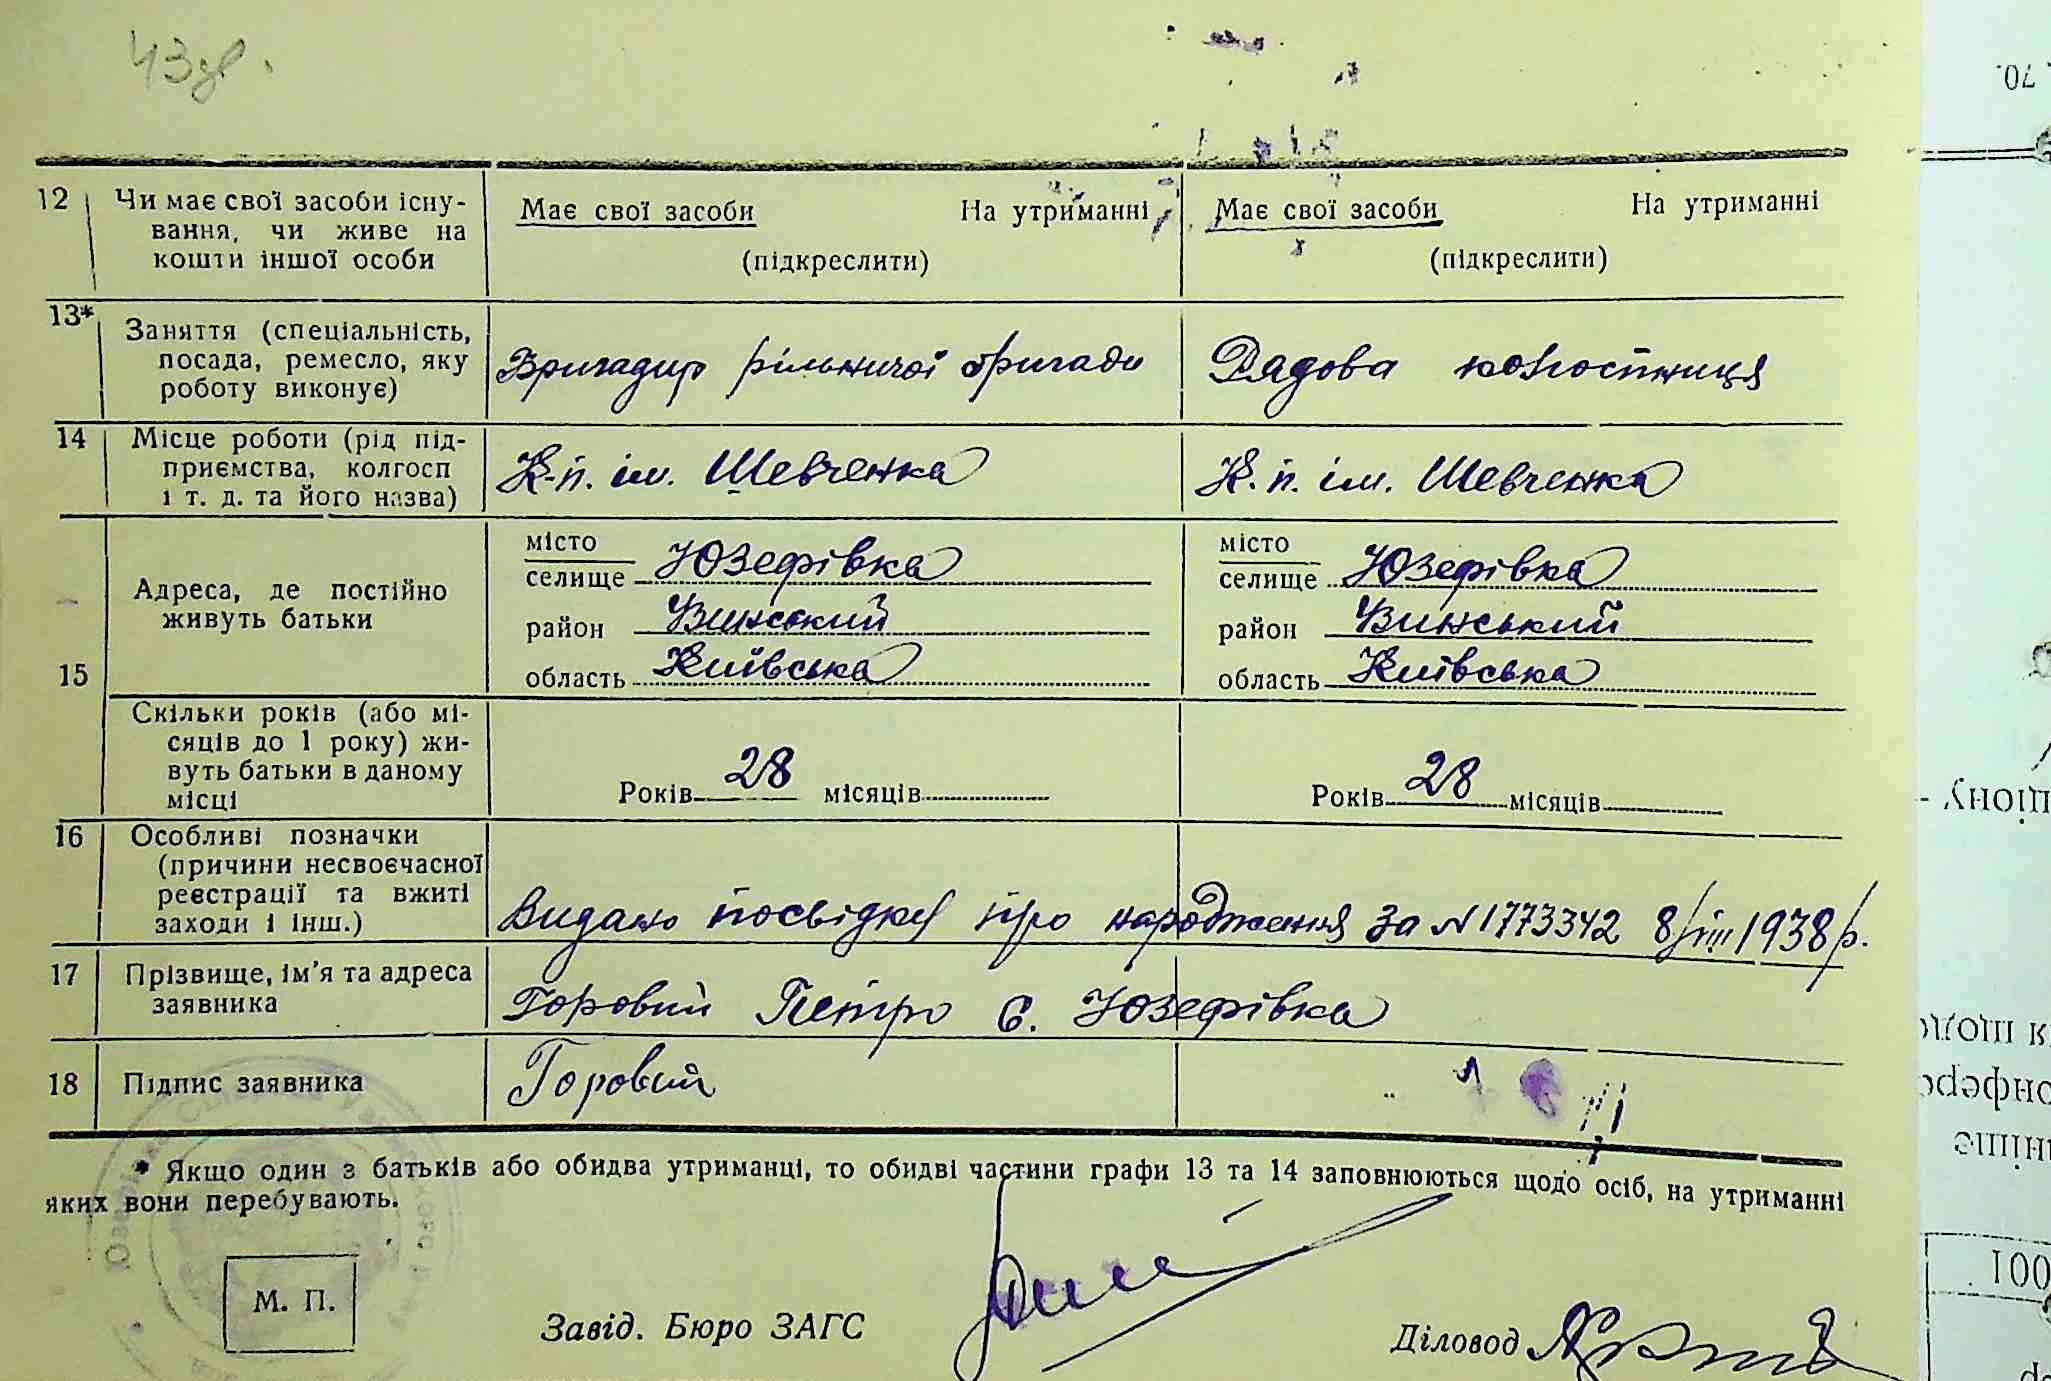 43 зв.
12 Чи має свої засоби існу- Має свої засоби На утриманні Має свої засоби На утриманні
вання, чи живе на
кошти іншої особи (підкреслити) (підкреслити)
13* Заняття (спеціальність,
посада, ремесло, яку Бригадир рільничої бригади Рядова колгоспниця
роботу виконує)
14 Місце роботи (рід під-
приємства, колгосп К-п. ім. Шевченка К. п. ім. Шевченка
і т. д. та його назва)
15 Адреса, де постійно
живуть батьки
місто
селище Юзефівка
район
область Київська
місто
селище Юзефівка
район
область Київська
Скільки років (або мі-
сяців до 1 року) жи-
вуть батьки в даному
місці
Років 28 місяців
Років 28 місяців
16 Особливі позначки
(причини несвоєчасної
реєстрації та вжиті
заходи і інш.)
Видано посвідку про народження за N 1773342 8/VIII 1938 р.
17 Прізвище, ім'я та адреса
заявника
Горовий Петро с. Юзефівка
18 Підпис заявника Горовий
* Якщо один з батьків або обидва утриманці, то обидві частини графи 13 та 14 заповнюються щодо осіб, на утриманні
яких вони перебувають.
М. П.
Завід. Бюро ЗАГС
Діловод